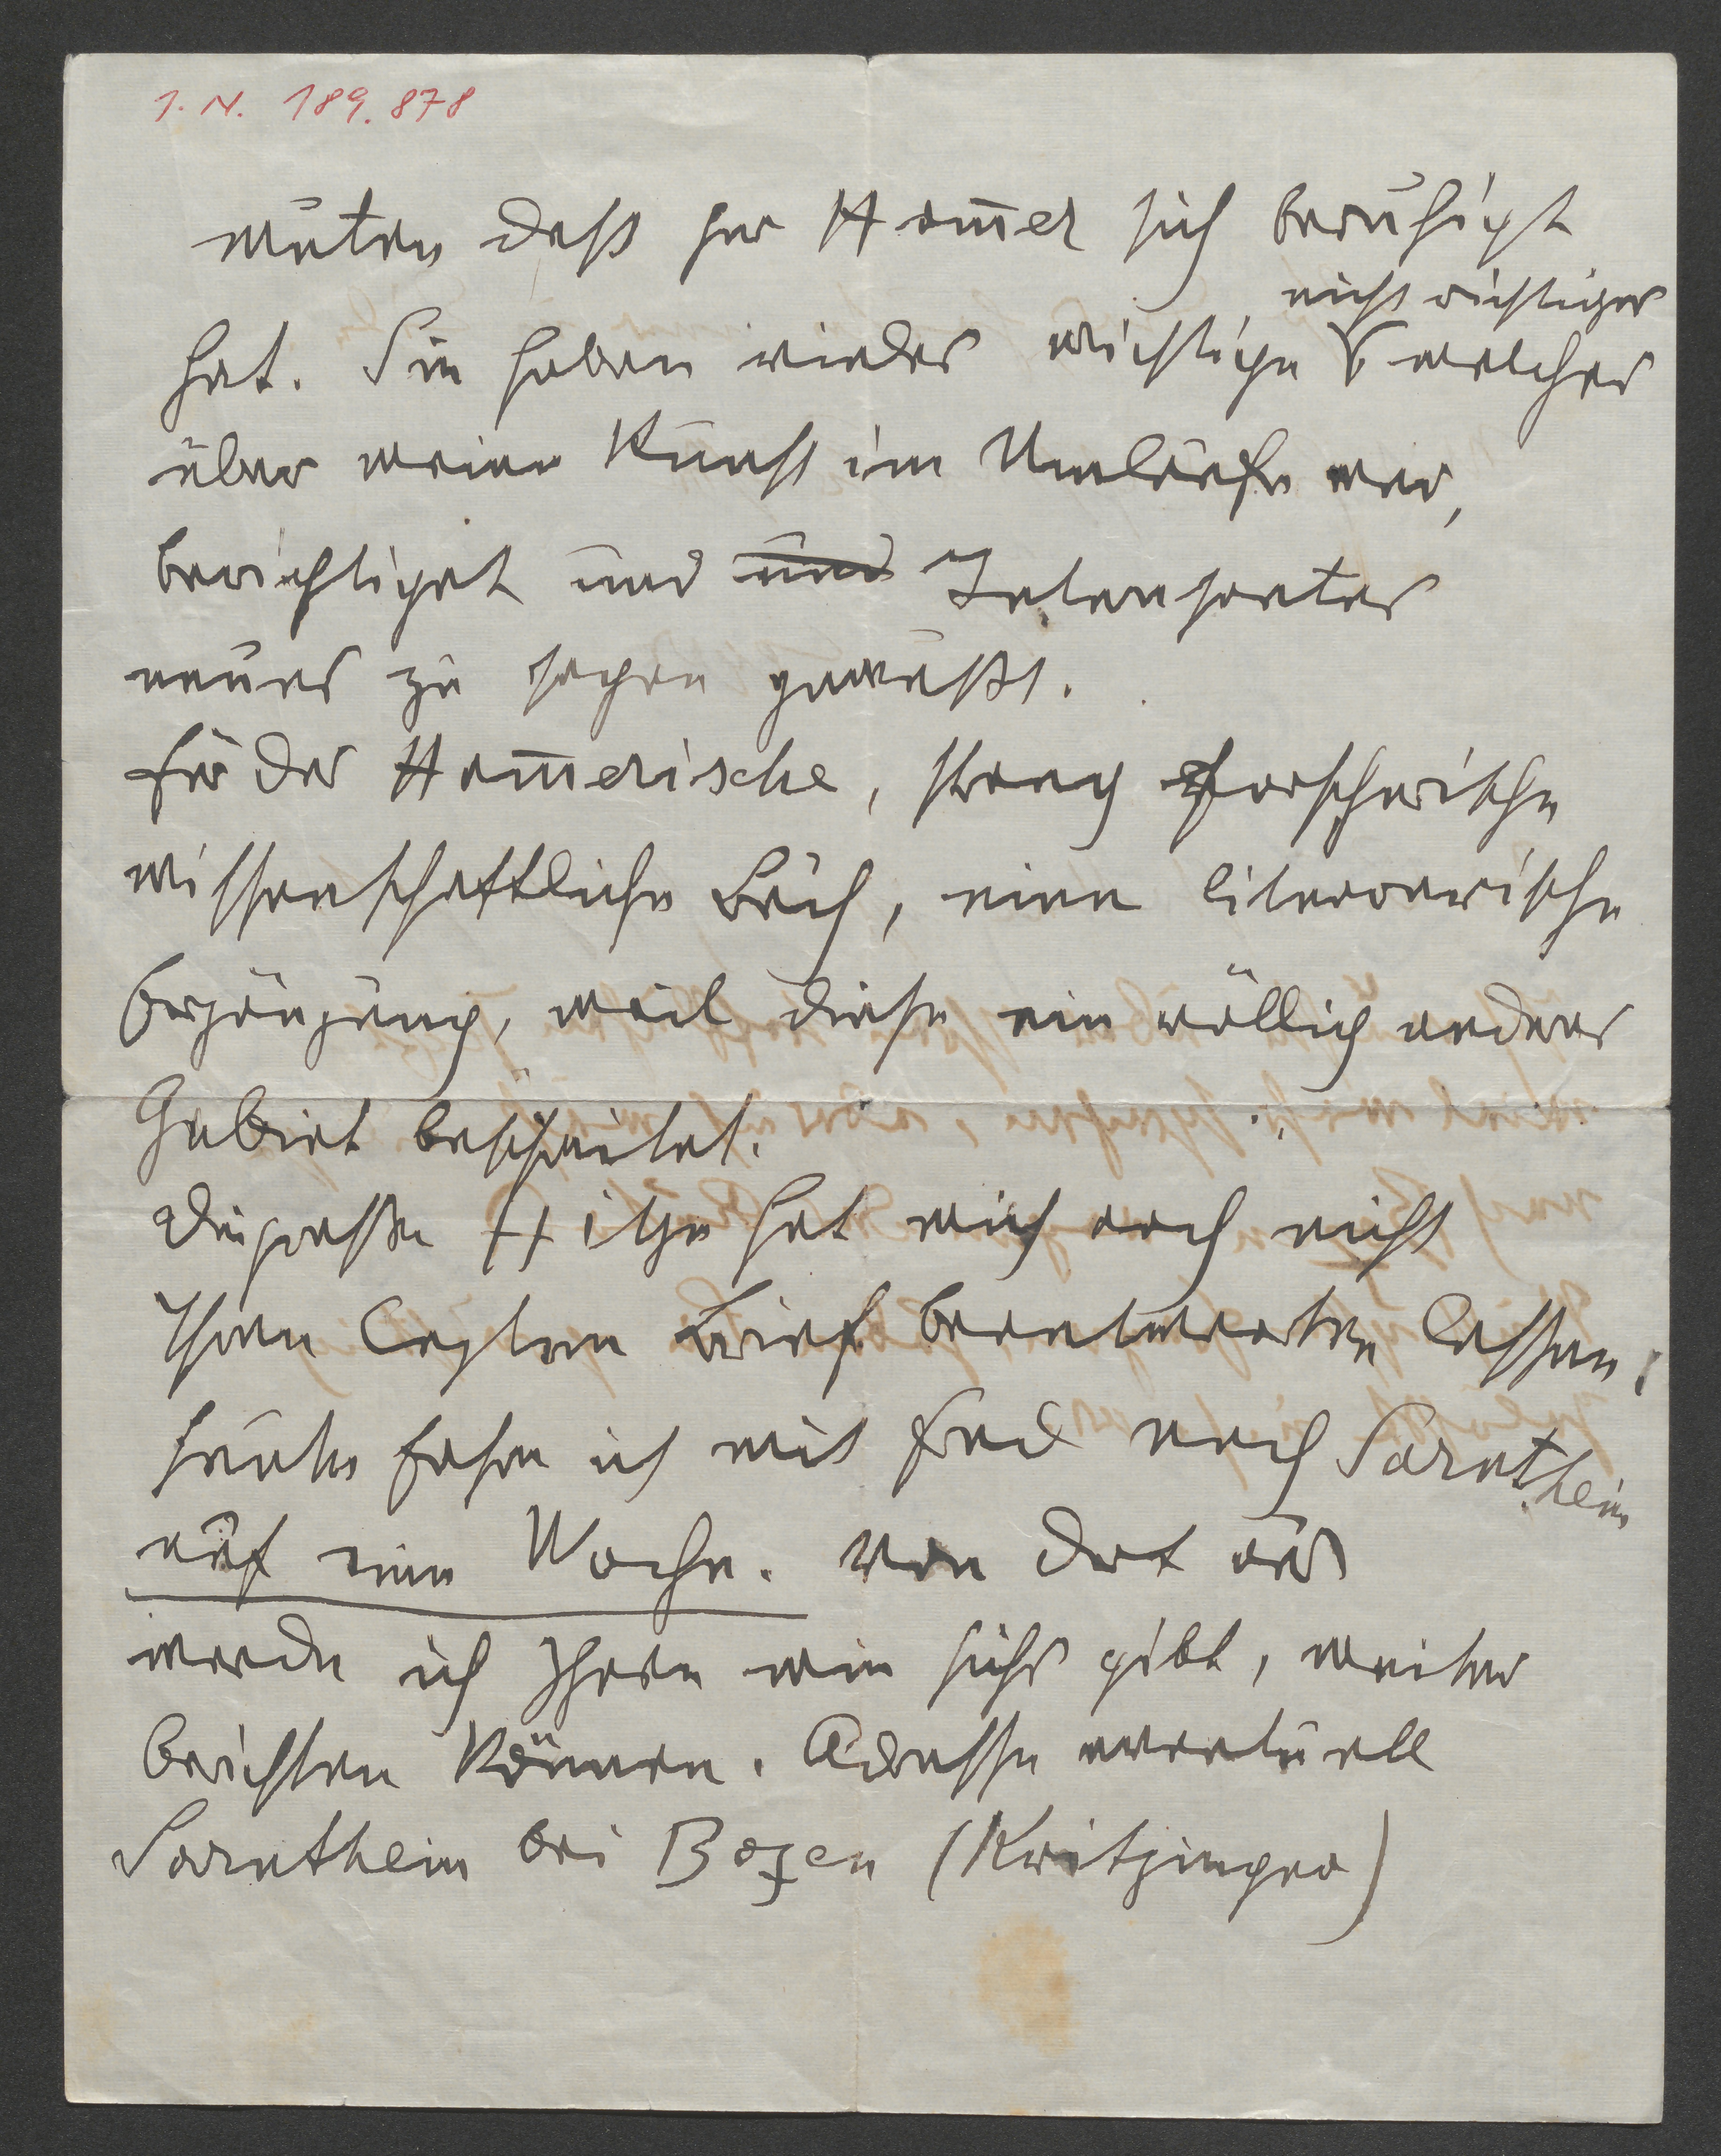 I. N. 189.878
muten daß Herr Hom̅el sich beruhigt
nicht richtiges
hat. Sie haben wieder wichtige welches
über meine Kunst im Umlaufe war,
berichtiget und und Interesantes
neues zu sagen gewußt.
für das Hom̅elische, streng forscherische
wissenschaftliche Buch, eine literarische
Ergänzung, weil diese ein völlig anderes
Gebiet beschreitet.
Die große Hitze hat mich noch nicht
Ihren letzten Brief beantworten lassen.
heute fahre ich mit Fred nach Sarnthein
auf eine Woche. von dort aus
werde ich Ihnen wie sichs gibt, weiter
berichten können. Adresse eventuell
Sarnthein bei Bozen (Kritzinger)